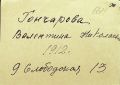 Гончарова
Валентина Николаев
1912.
9 Слободская, 13